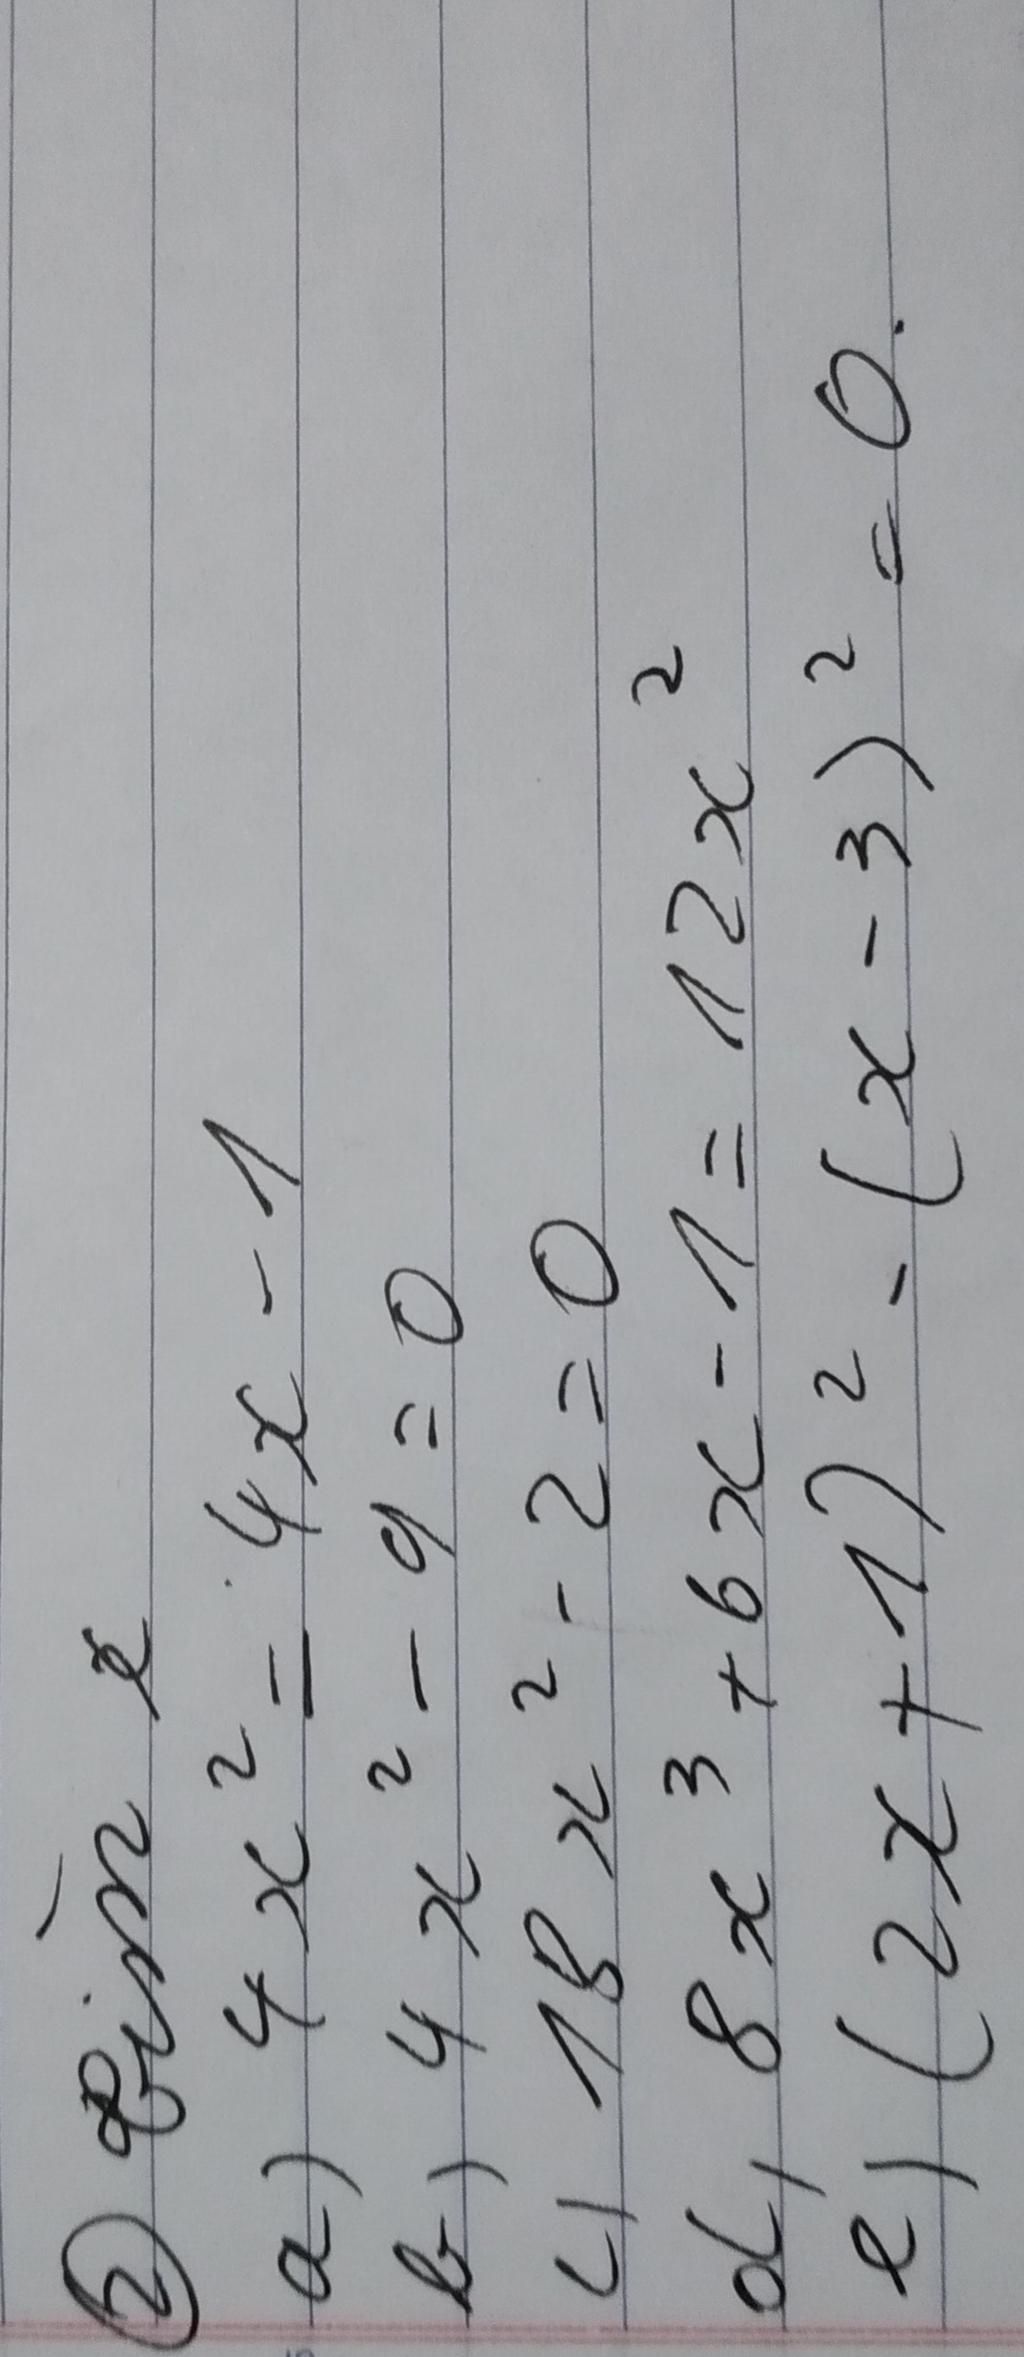 ② Tìm x
a) 4x² = 4x - 1
b) 4x² - 9 = 0
c) 18x² - 2 = 0
d) 8x³ + 6x - 1 = 12x²
e) (2x + 1)² - (x - 3)² = 0.